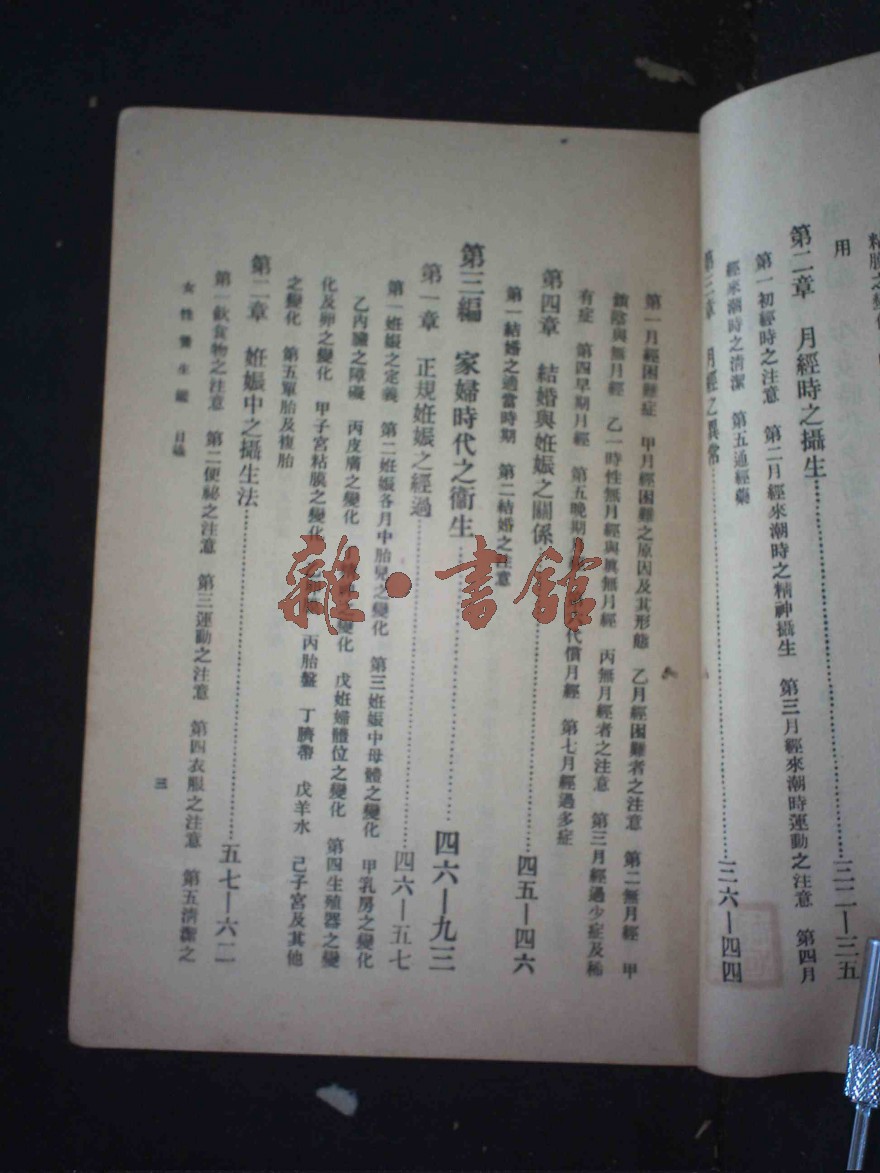 用
第二章 月經時之攝生……三二—三五
第一初經時之注意 第二月經來潮時之精神攝生 第三月經來潮時運動之注意 第四月
經來潮時之清潔 第五通經藥
第三章 月經之異常……三六—四四
第一月經困難症 甲月經困難之原因及其形態 乙月經困難者之注意 第二無月經 甲
鎖陰與無月經 乙一時性無月經與眞無月經 丙無月經者之注意 第三月經過少症及稀
有症 第四早期月經 第五晚期月經 代償月經 第七月經過多症
第四章 結婚與姙娠之關係……四五—四六
第一結婚之適當時期 第二結婚之注意
第三編 家婦時代之衞生……四六—九三
第一章 正規姙娠之經過……四六—五七
第一姙娠之定義 第二姙娠各月中胎兒之變化 第三姙娠中母體之變化 甲乳房之變化
乙內臟之障礙 丙皮膚之變化 之變化 戊姙婦體位之變化 第四生殖器之變
化及卵之變化 甲子宮粘膜之變化 丙胎盤 丁臍帶 戊羊水 己子宮及其他
之變化 第五單胎及複胎
第二章 姙娠中之攝生法……五七—六二
第一飲食物之注意 第二便祕之注意 第三運動之注意 第四衣服之注意 第五清潔之
女性養生鑑 目錄
三
雜·書館